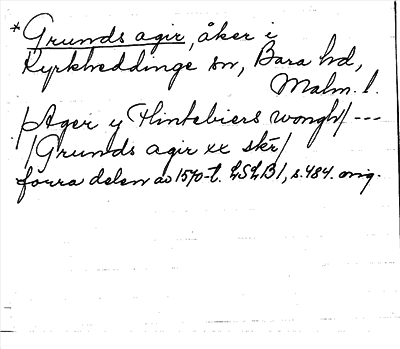 *Grunds agir, åker i
Kyrkheddinge sn, Bara hd,
Malm. l.
/Ager y Flintebiers wongh/ ---
/Grunds agir xx skr/
förra delen av 1570-t. LSLB1, s. 484. orig.